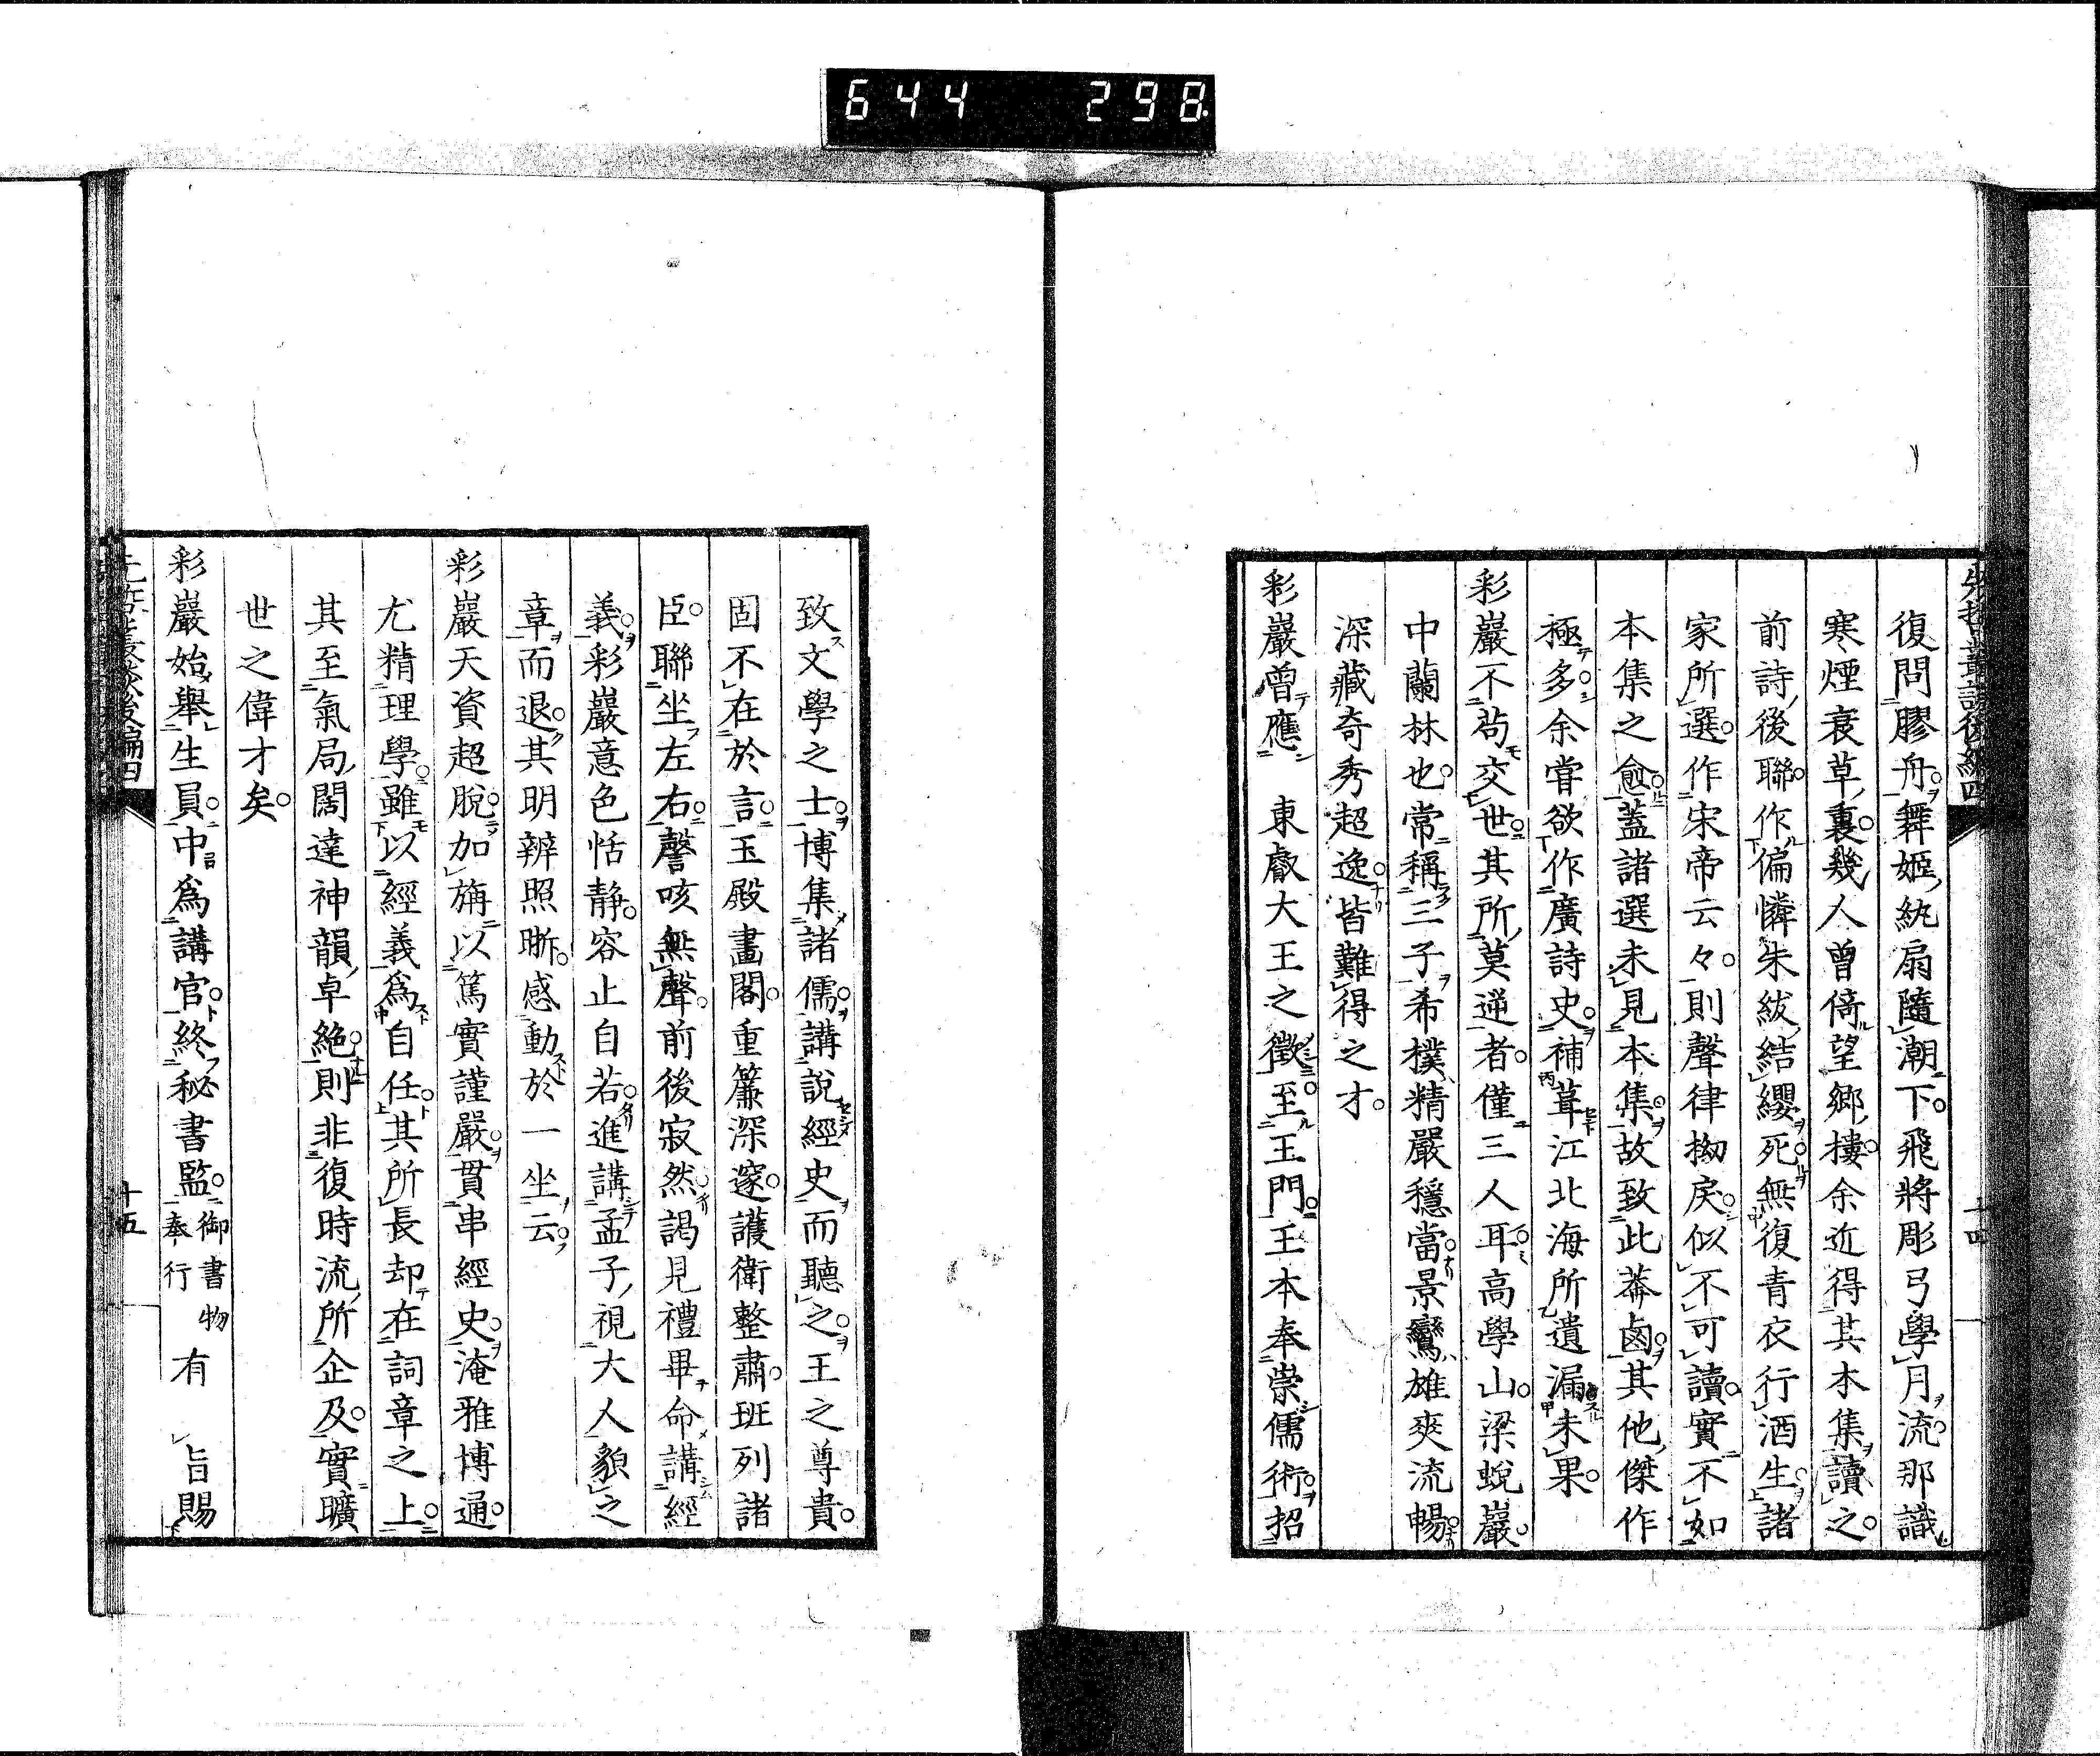 644 298
先哲叢談後編四
十四
復問膠舟。舞姬紈扇隨潮下。飛將彫弓學月流。那識
寒煙衰草裏。幾人曾倚望鄉樓。余近得其本集讀之。
前詩後聯。作偏憐朱紱結纓死。無復青衣行酒生。諸
家所選。作宋帝云々。則聲律拗戾。似不可讀。實不如
本集之愈。蓋諸選未見本集。故致此莽鹵。其他傑作
極多。余嘗欲作廣詩史。補葺江北海所遺漏。未果。
彩巖不苟交世。其所莫逆者。僅三人耳。高學山。梁蛻巖。
中蘭林也。常稱三子。希樸精嚴穩當。景鸞雄爽流暢。
深藏奇秀超逸。皆難得之才。
彩巖曾應 東叡大王之徵。至王門。王本奉崇儒術。招
致文學之士。博集諸儒。講說經史而聽之。王之尊貴。
固不在於言。玉殿畫閣。重簾深邃。護衛整肅。班列諸
臣。聯坐左右。謦咳無聲。前後寂然。謁見禮畢。命講經
義。彩巖意色恬靜。容止自若。進講孟子視大人藐之
章而退。其明辨照晰。感動於一坐云。
彩巖天資超脫。加旃以篤實謹嚴。貫串經史。淹雅博通。
尤精理學。雖以經義爲自任。其所長却在詞章之上。
其至氣局闊達神韻卓絕。則非復時流所企及。實曠
世之偉才矣。
彩巖始舉生員。中爲講官。終秘書監。御書物奉行 有 旨賜
先哲叢談後編四
十五